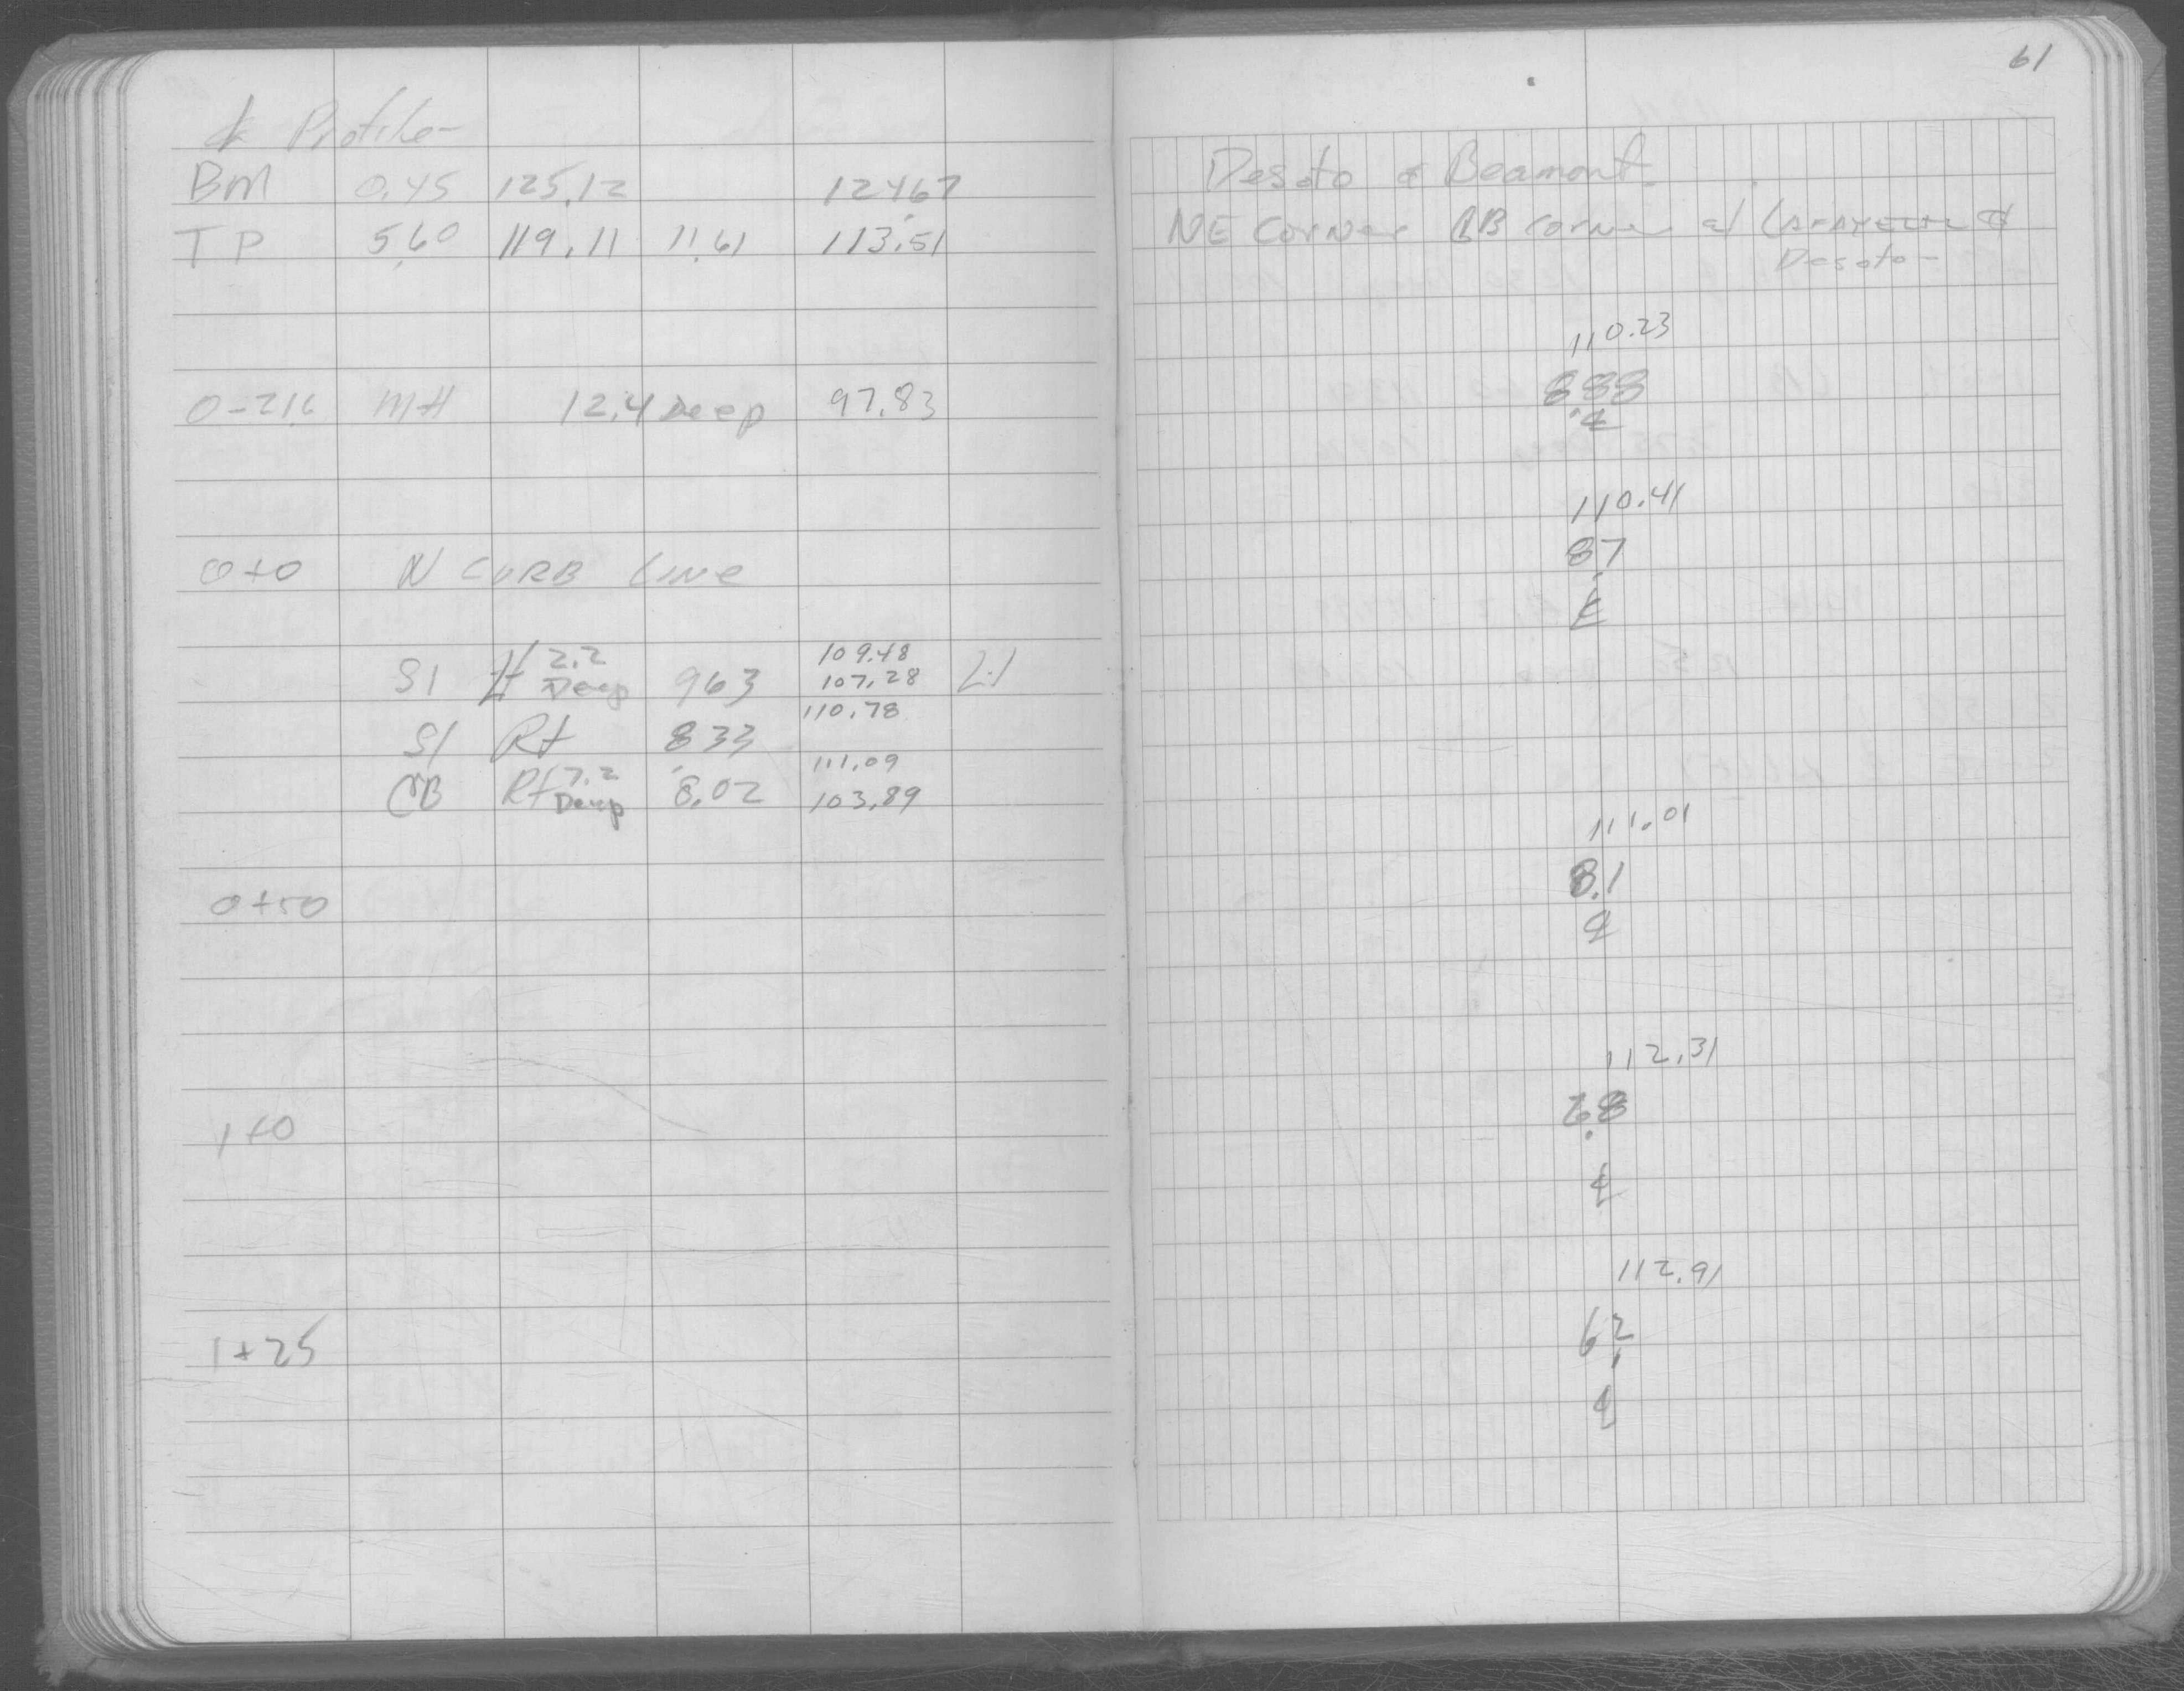 61
℄ Profile-
BM 0.45 125.12 124.67
TP 5.60 119.11 11.61 113.51
0-21.6 MH 12.4 Deep 97.83
0+0 N CURB LINE
109.48
SI Lt 2.2 Deep 963 107.28
110.78
SI Rt 8.33
111.09
CB Rt 7.2 Deep 8.02 103.89
0+50
1+0
1+25
Desoto & Beamont
NE Corner BB corner of LAFAYETTE &
Desoto-
110.23
8.88
℄
110.41
8.7
℄
111.01
8.1
℄
112.31
6.8
℄
112.91
6.2
℄